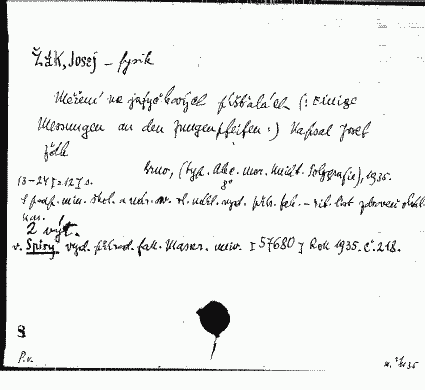 ŽÁK, Josef – fysik
Měření na jazýčkových píšťalách (: Einige
Messungen an den Zungenpfeifen :) Napsal Josef
Žák
Brno, (typ. Akc. mor. kniht. Polygrafie), 1935.
8°
(3–24 [= 12] s.
S podp. min. škol. a nár. osv. vyd. přír. fak. –
2 výt.
v. Spisy vyd. přírod. fak. Masar. univ. [57680] Rok 1935. č. 218.
8
P.v.